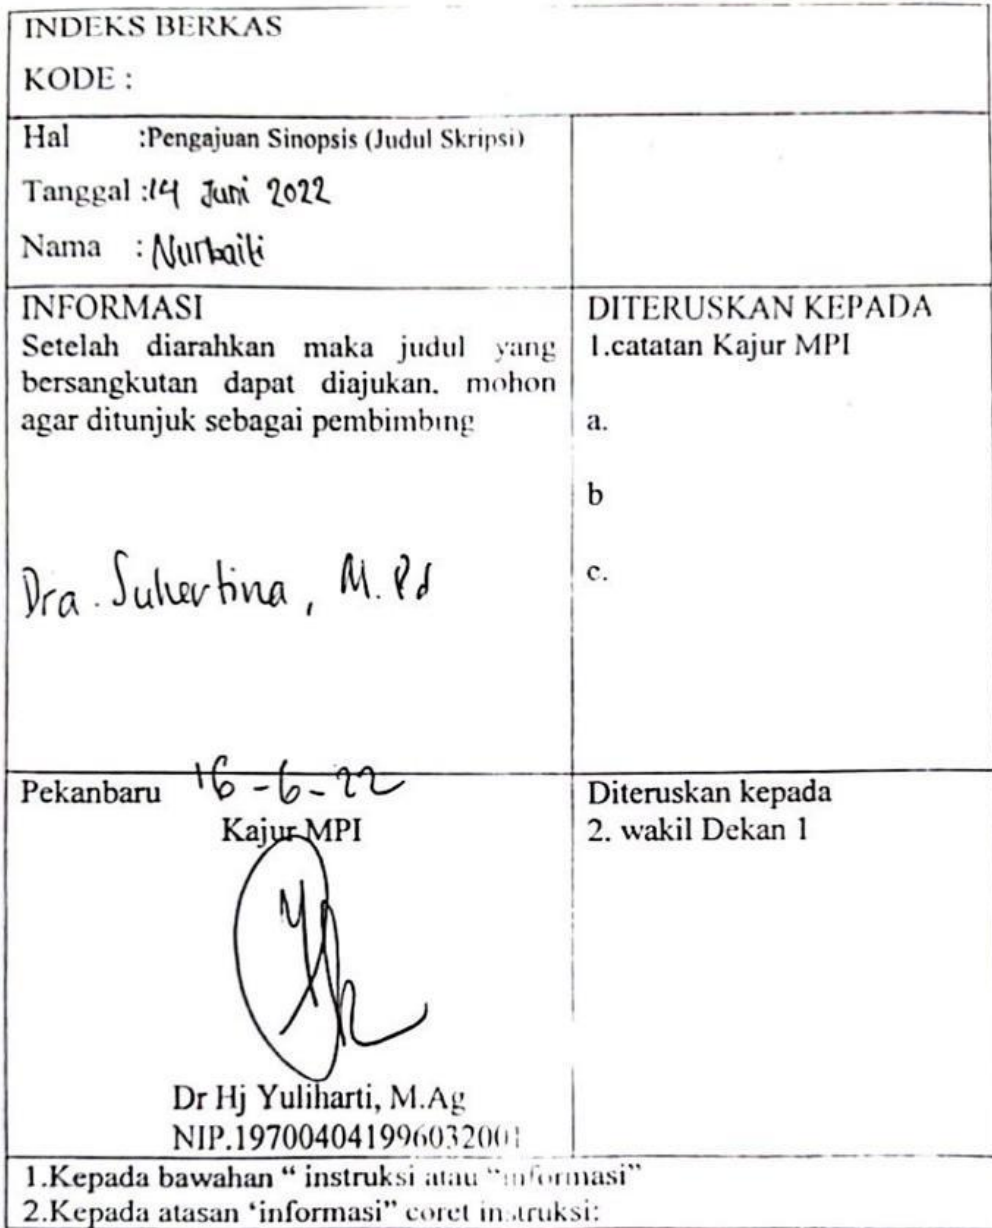 INDEKS BERKAS
KODE :
Hal :Pengajuan Sinopsis (Judul Skripsi)
Tanggal :14 Juni 2022
Nama : Nurbaiti
INFORMASI
Setelah diarahkan maka judul yang
bersangkutan dapat diajukan. mohon
agar ditunjuk sebagai pembimbing
Dra. Suhertina, M.Pd
DITERUSKAN KEPADA
1.catatan Kajur MPI
a.
b
c.
Pekanbaru 16-6-22
Kajur MPI
Dr Hj Yuliharti, M.Ag
NIP.197004041996032001
Diteruskan kepada
2. wakil Dekan 1
1.Kepada bawahan “ instruksi atau “informasi”
2.Kepada atasan ‘informasi” coret instruksi: